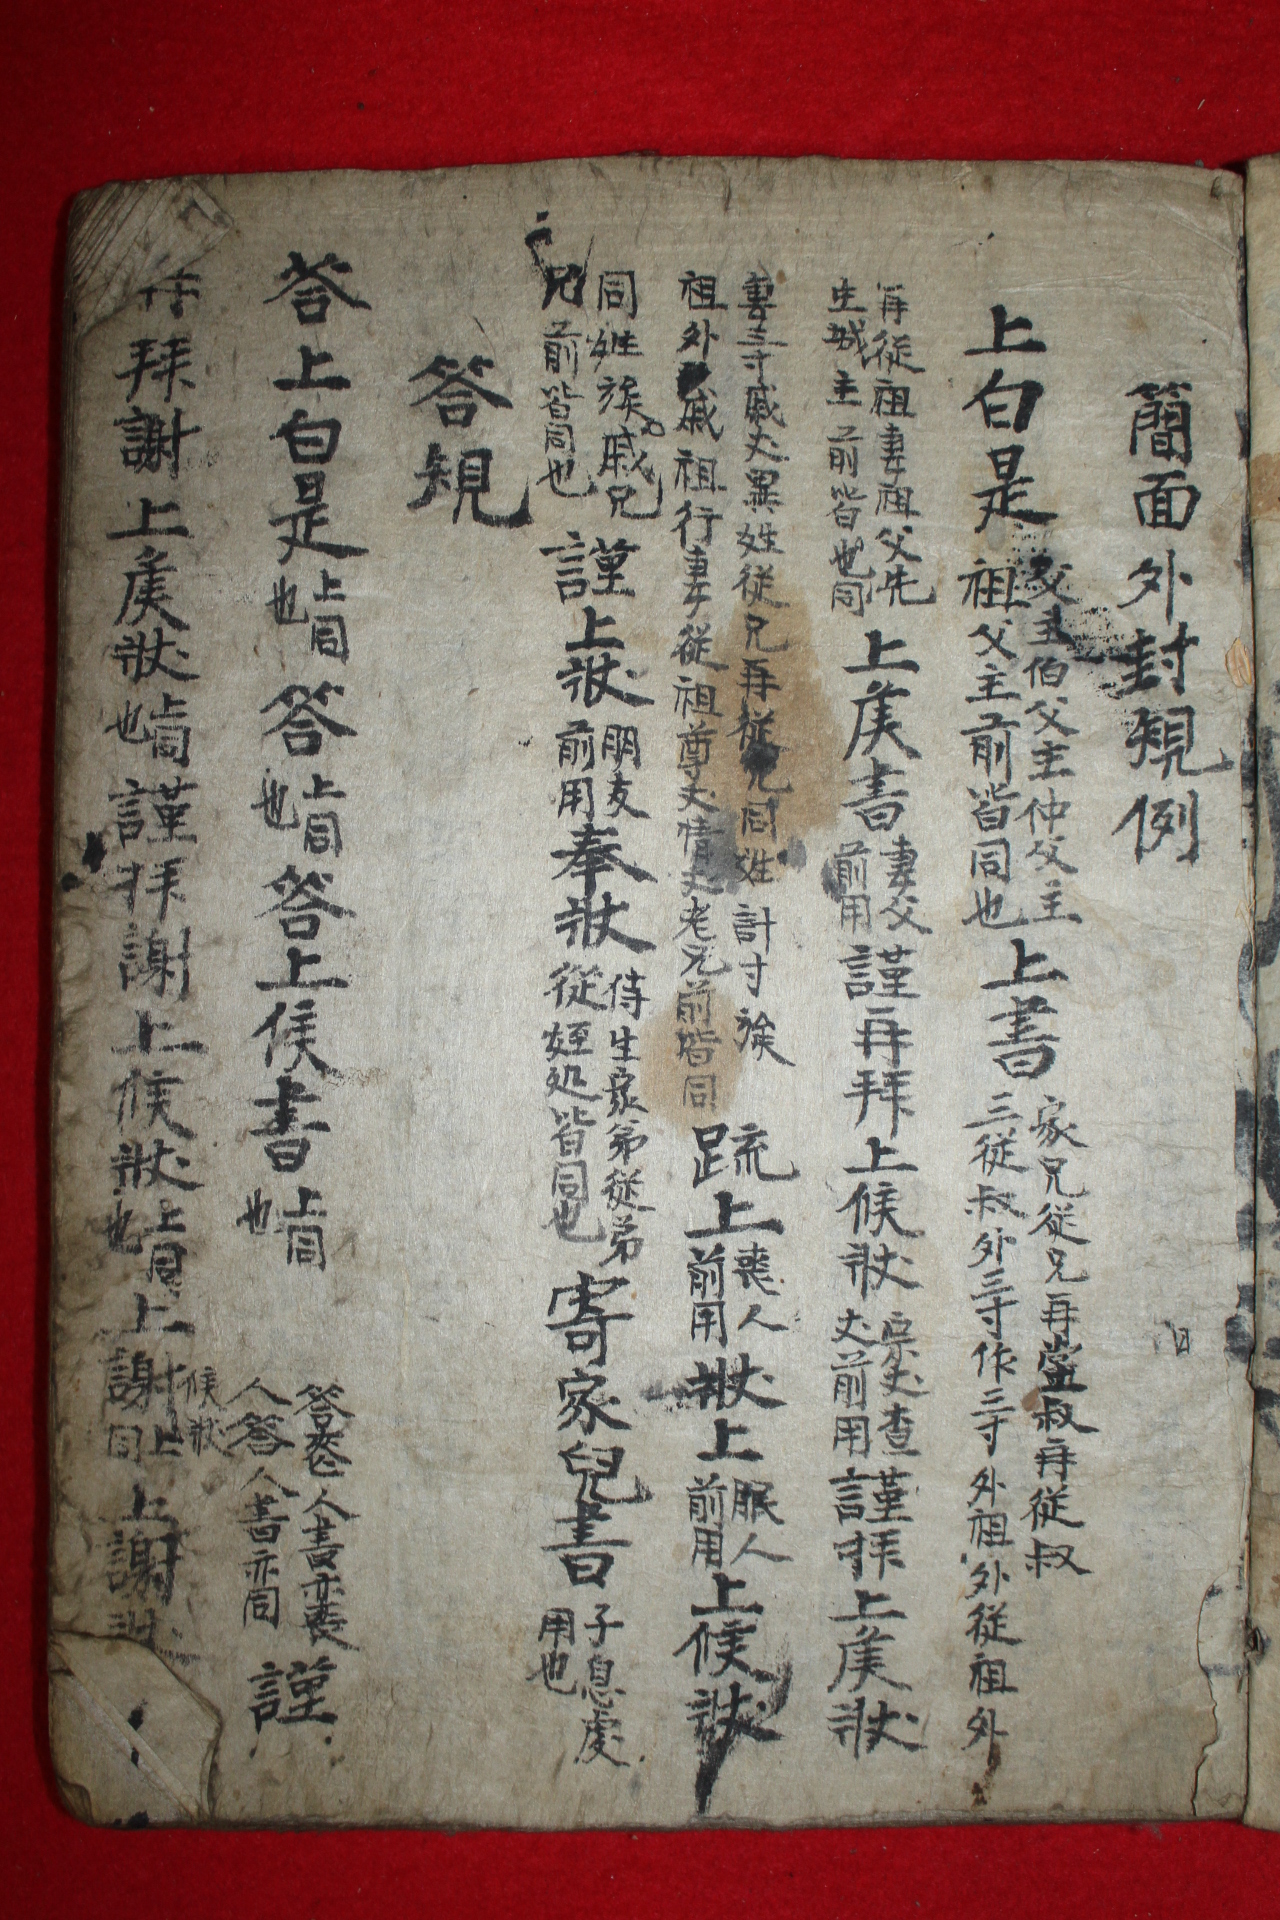 簡面外封規例
上白是 父主伯父主仲父主祖父主前皆同也 上書 家兄從兄再堂叔再從叔三從叔外三寸作三寸外祖外從祖外
再從祖妻祖父先生城主前皆也同 上候書 妻父前用 謹再拜上候狀 宗丈查丈前用 謹拜上候狀
妻三寸戚丈異姓從兄再從兄同姓計寸族祖外戚祖行妻從祖尊丈情丈老兄前皆同 疏上 喪人前用 狀上 服人前用 上候狀
同姓族戚兄兄前皆同也 謹上狀 朋友前用 奉狀 侍生家弟從弟從姪処皆同也 寄家兒書 子息處用也
答規
答上白是 上同也 答 上同也 答上候書 上同也 答人書亦喪人答人書亦同 謹
再拜謝上候狀 上同也 謹拜謝上候狀 上同也 上謝 候狀上同 上謝狀